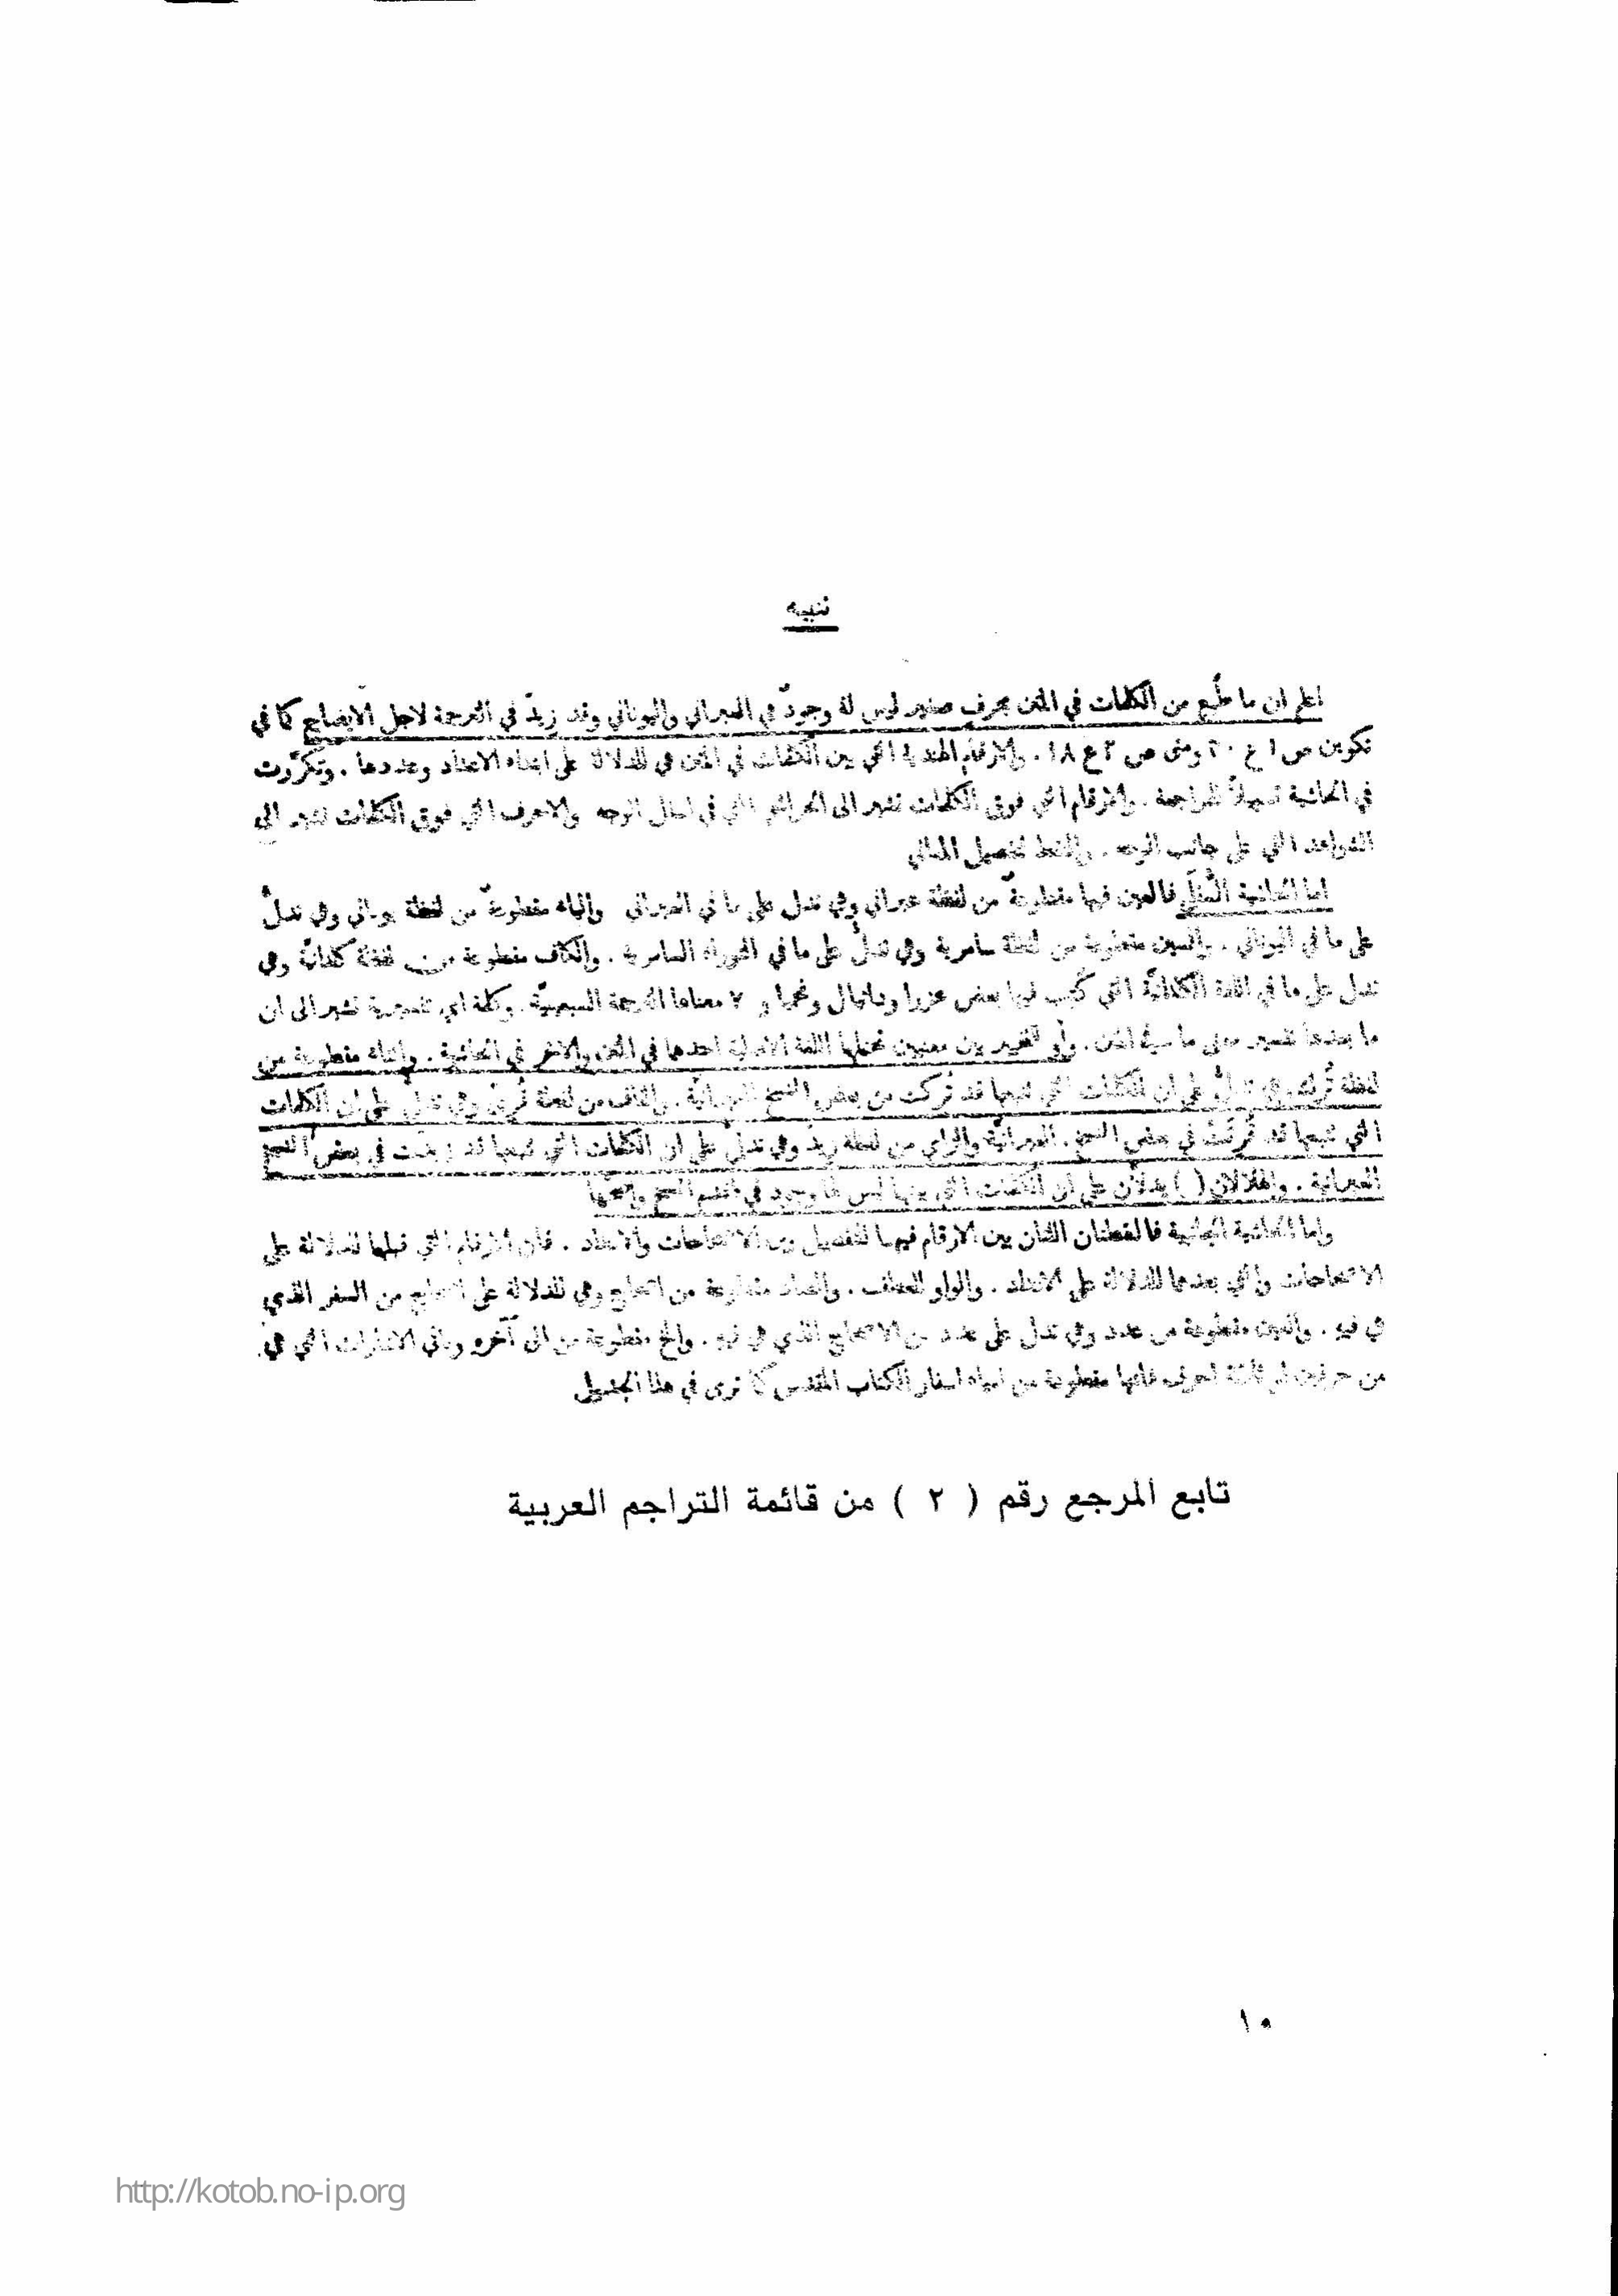 تنبيه
اعلم ان ما طُبع من الكلمات في المتن بحرف صغير ليس لهُ وجودٌ في العبراني واليوناني وقد زيدَ في الترجمة لاجل الايضاح كما في
تكوين ص ١ ع ٢٠ ومتى ص ٢ ع ١٨ . والارقام الهندية التي بين الكلمات في المتن هي للدلالة على ابتداء الاعداد وعددها . وتكرَّرت
في الحاشية تسهيلاً للمراجعة . والارقام التي فوق الكلمات تشير الى الحواشي التي في اسفل الوجه والاحرف التي فوق الكلمات تشير الى
الشواهد التي على جانب الوجه . والنقط لتحصيل المعاني
اما الحاشية السُفلَى فالعين فيها مقطوعةٌ من لفظة عبراني وهي تدل على ما في العبراني والياء مقطوعةٌ من لفظة يوناني وهي تدلُّ
على ما في اليوناني . والسين مقطوعة من لفظة سامرية وهي تدلُّ على ما في التوراة السامرية . والكاف مقطوعة من لفظة كلدانيَّة وهي
تدل على ما في اللغة الكلدانيَّة التي كُتِب فيها بعض عزرا ودانيال ونحميا و ٧ معناها الترجمة السبعينيَّة . وكلمة اي تفسيرية تشير الى ان
ما بعدها تفسير معنى ما في المتن . وأو للتخيير بين معنيين تحتملها اللغة الاصلية احدها في المتن والآخر في الحاشية . والتاء مقطوعة من
لفظة تُرِك وهي تدلُّ على ان الكلمات التي تتبعها قد تُركت من بعض النسخ العبرانيَّة . والقاف من لفظة قُرِئ وهي تدلُّ على ان الكلمات
التي تتبعها قد قُرِئَتْ في بعض النسخ العبرانيَّة والزاي من لفظة زِيدَ وهي تدلُّ على ان الكلمات التي تتبعها قد زيدَت في بعض النسخ
العبرانية . والهلالان ( ) يدلاَّن على ان الكلمات التي بينها ليس لها وجود في اقدم النسخ واصحّها
واما الحاشية الجانبية فالنقطتان اللتان بين الارقام فيها للتفصيل بين الاصحاحات والاعداد . فان الارقام التي قبلها للدلالة على
الاصحاحات والتي بعدها للدلالة على الاعداد . والواو للعطف . والصاد مقطوعة من اصحاح وهي للدلالة على اصحاح من السفر الذي
هي فيهِ . والعين مقطوعة من عدد وهي تدل على عدد من الاصحاح الذي هي فيهِ . والخ مقطوعة من الى آخره وباقي الاشارات التي هي
من حرفين او ثلاثة احرف فانها مقطوعة من اسماء اسفار الكتاب المقدس كما ترى في هذا الجدول
تابع المرجع رقم ( ٢ ) من قائمة التراجم العربية
١٠
http://kotob.no-ip.org